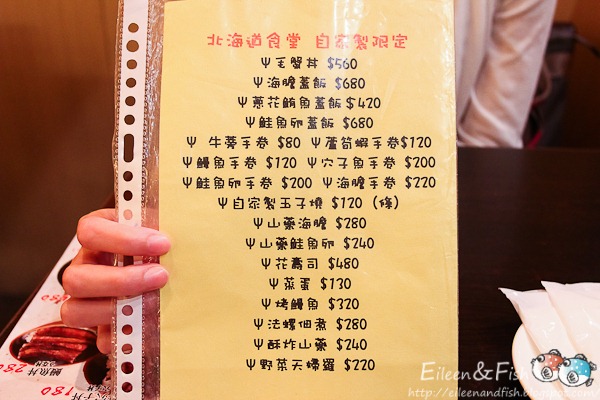 北海道食堂 自家製限定
Ψ毛蟹丼 $560
Ψ海膽蓋飯 $680
Ψ蔥花鮪魚蓋飯 $420
Ψ鮭魚卵蓋飯 $680
Ψ 牛蒡手卷 $80 Ψ蘆筍蝦手卷$120
Ψ鰻魚手卷 $120 Ψ穴子魚手卷 $200
Ψ鮭魚卵手卷 $200 Ψ海膽手卷 $220
Ψ自家製玉子燒 $120 (條)
Ψ山藥海膽 $280
Ψ山藥鮭魚卵 $240
Ψ花壽司 $480
Ψ菜蛋 $130
Ψ烤鰻魚 $320
Ψ法螺佃煮 $280
Ψ酥炸山藥 $240
Ψ野菜天婦羅 $220
鰻魚丼
180
Eileen&Fish
http://eileenandfish.blogspot.com/